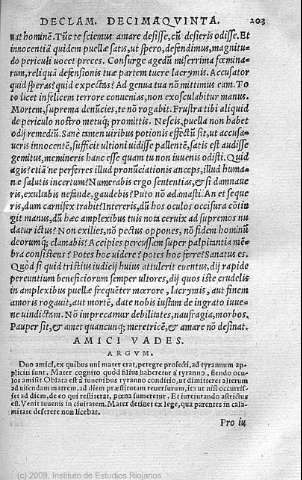 DECLAM. DECIMAQVINTA. 203
nat hominē. Tūc te sciemus amare desisse, cū desieris odisse. Et
innocentiā quidem puellæ satis, ut spero, defendimus, magnitu
do periculi uocet preces. Consurge agedū miserrima fœmina-
rum, reliquā defensionis tuæ partem tuere lacrymis. Accusator
quid speras? quid expectas? Ad genua tua nō mittimus eam. To
to licet infelicem terrore conuenias, non exosculabitur manus.
Mortem, suprema denūcies, te nō rogabit. Frustra tibi aliquid
de periculo nostro metuq; promittis. Nescis, puella non habet
odij remediū. Sanè tamen uiribus potionis effectū sit, ut accusa-
ueris innocentē, sufficit ultioni uidisse pallentē, satis est audisse
gemitus, memineris hanc esse quam tu non iuuenis odisti. Quid
agis? etiā ne perferes illam pronūciationis anceps, illud huma-
næ salutis incertum? Numerabis ergo sententias, & si damnaue
ris, exultabis nefande, gaudebis? Puto nō adamasti. An et seque
ris, dum carnifex trahit? Intereris, dū hos oculos occisura cotin
git manus, dū hæc amplexibus tuis nota ceruix ad supremos nu
datur ictus? Non exilies, nō pectus oppones, nō fidem hominū
deorumq; clamabis? Accipies percussam super palpitantia mē-
bra consistens? Potes hoc uidere? potes hoc ferre? Sanatus es.
Quòd si quid tristius iudicij huius attulerit euentus, dij rapide
pereuntium beneficiorum semper ultores, dij quos iste crudelis
in amplexibus puellæ frequēter mærore, lacrymis, aut finem
amoris rogauit, aut mortē, date nobis iustam de ingrato iuue-
ne uindictam. Nō imprecamur debilitates, naufragia, morbos.
Pauper sit, & amet quancunq; meretricē, & amare nō desinat.
AMICI VADES.
ARGVM.
Duo amici, ex quibus uni mater erat, peregrè profecti, ad tyrannum ap
pliciti sunt. Mater cognito quòd filius haberetur à tyranno, flendo ocu
los amisit. Oblata est à iuuenibus tyranno conditio, ut dimitteret alterum
ad uisendam matrem, ad diem præstitutam reuersurum, ita ut nisi occurris-
set ad diem, de eo qui restitisset, pœna sumeretur. Et iureiurando astrictus
est. Venit iuuenis in ciuitatem. Mater detinet ex lege, qua parentes in cala-
mitate deserere non licebat.
Pro iu
(c) 2009, Instituto de Estudios Riojanos